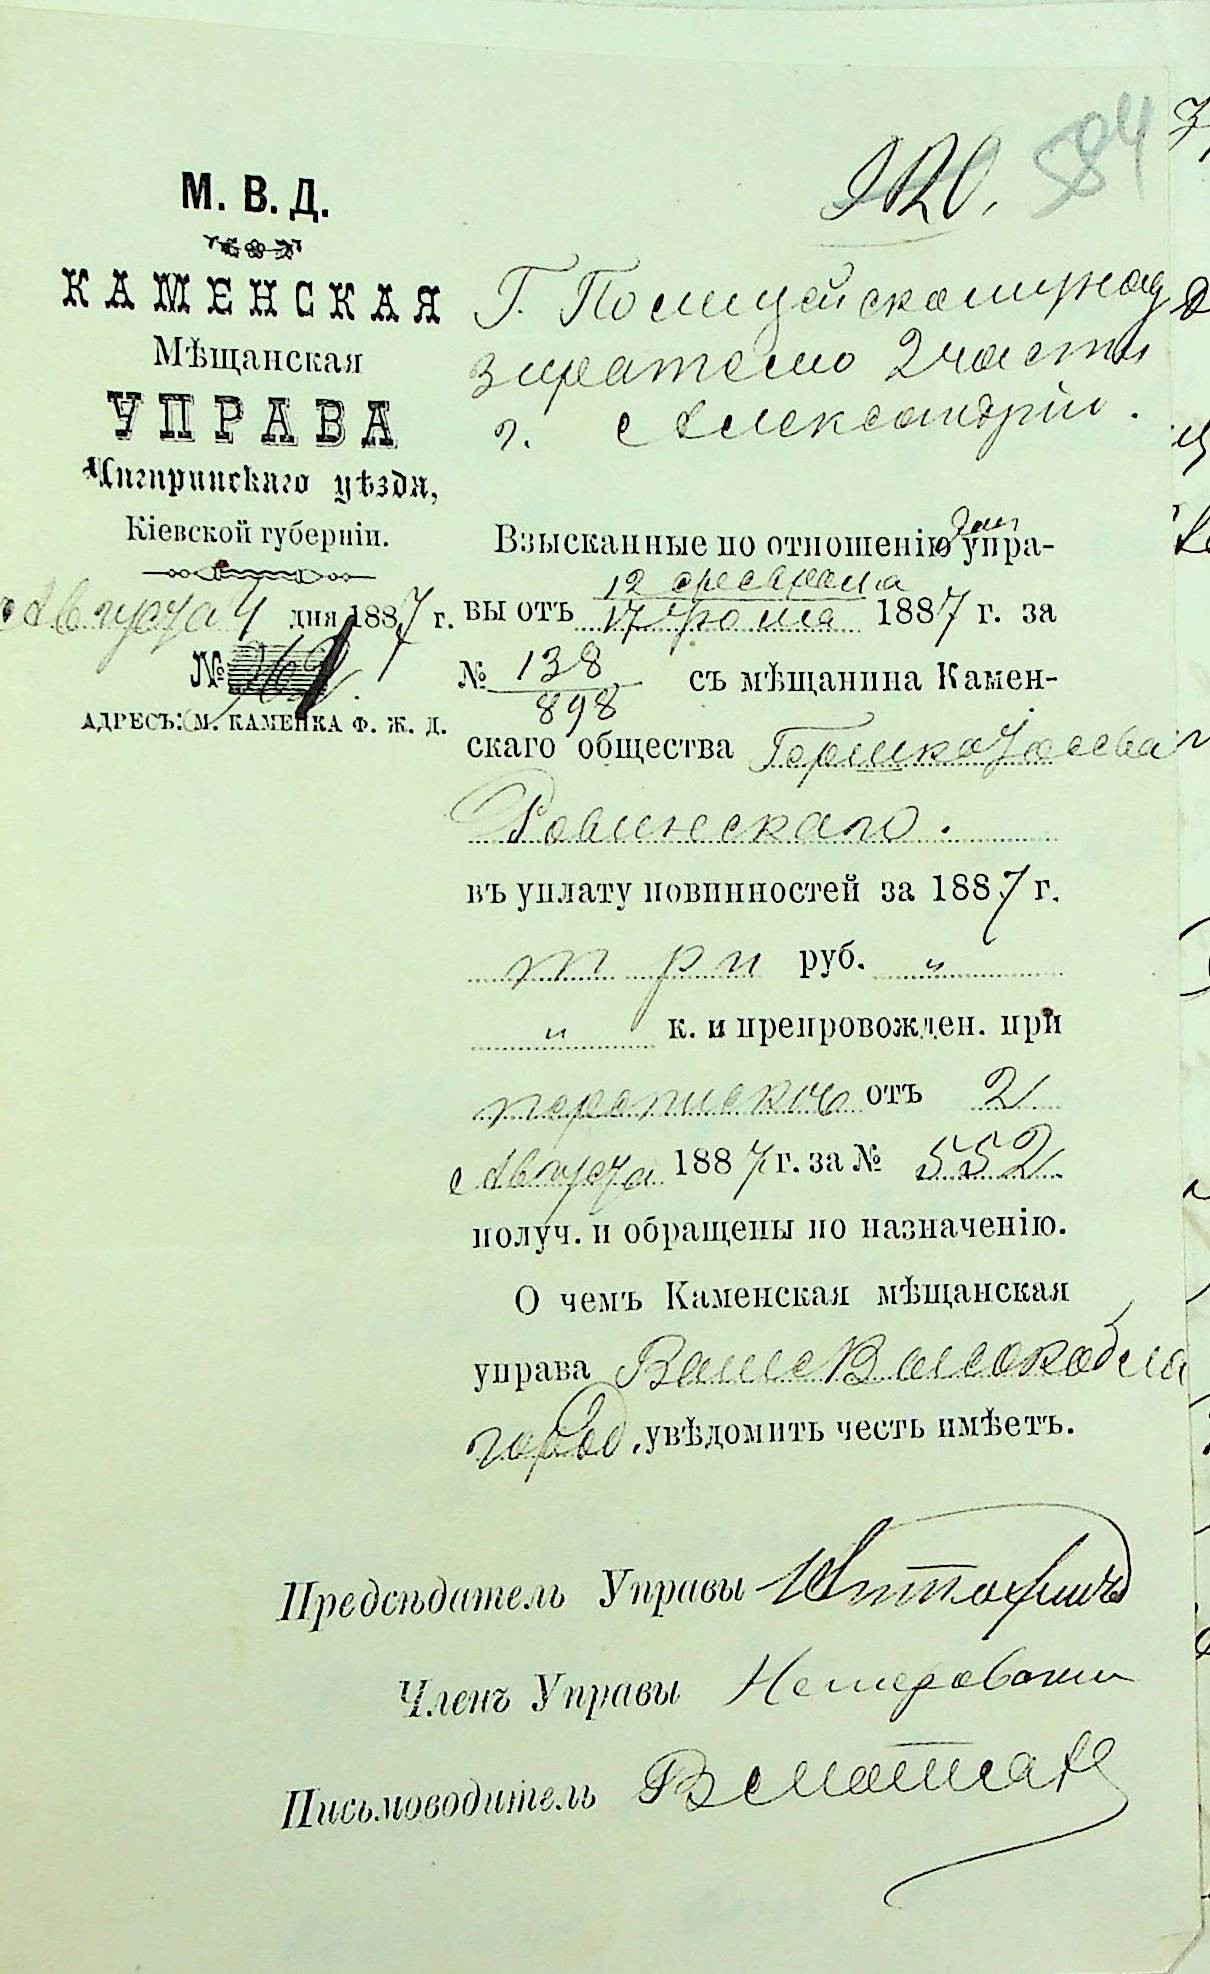 584
М. В. Д.
КАМЕНСКАЯ
Мѣщанская
УПРАВА
Чигиринскаго уѣзда,
Кіевской губерніи.
Августа 4 дня 1887 г.
№ 262
АДРЕСЪ: М. КАМЕНКА Ф. Ж. Д.
Г. Полицейскому над
зирателю 2 части
г. Александріи.
Взысканные по отношенію упра-
12 февраля
вы отъ 17 1887 г. за
№ 138
898
съ мѣщанина Камен-
скаго общества Гершка
Ровинскаго.
въ уплату повинностей за 1887 г.
три руб. "
" к. и препровожден. при
отъ 2
Августа 1887 г. за № 552
получ. и обращены по назначенію.
О чемъ Каменская мѣщанская
управа Ваше Высокобла
город. увѣдомить честь имѣетъ.
Предсѣдатель Управы
Членъ Управы
Письмоводитель